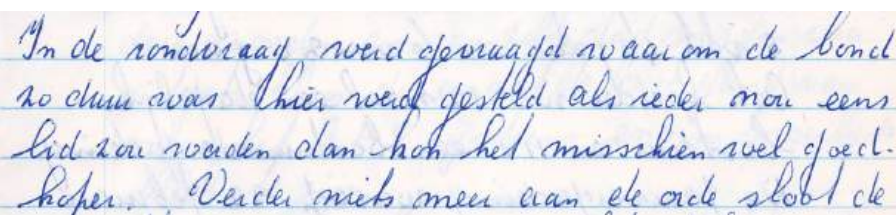 In de rondvraag werd gevraagd waarom de bond
zo duur was hier werd gesteld als ieder nou eens
lid zou worden dan kon het misschien wel goed-
koper. Verder niets meer aan de orde sloot de